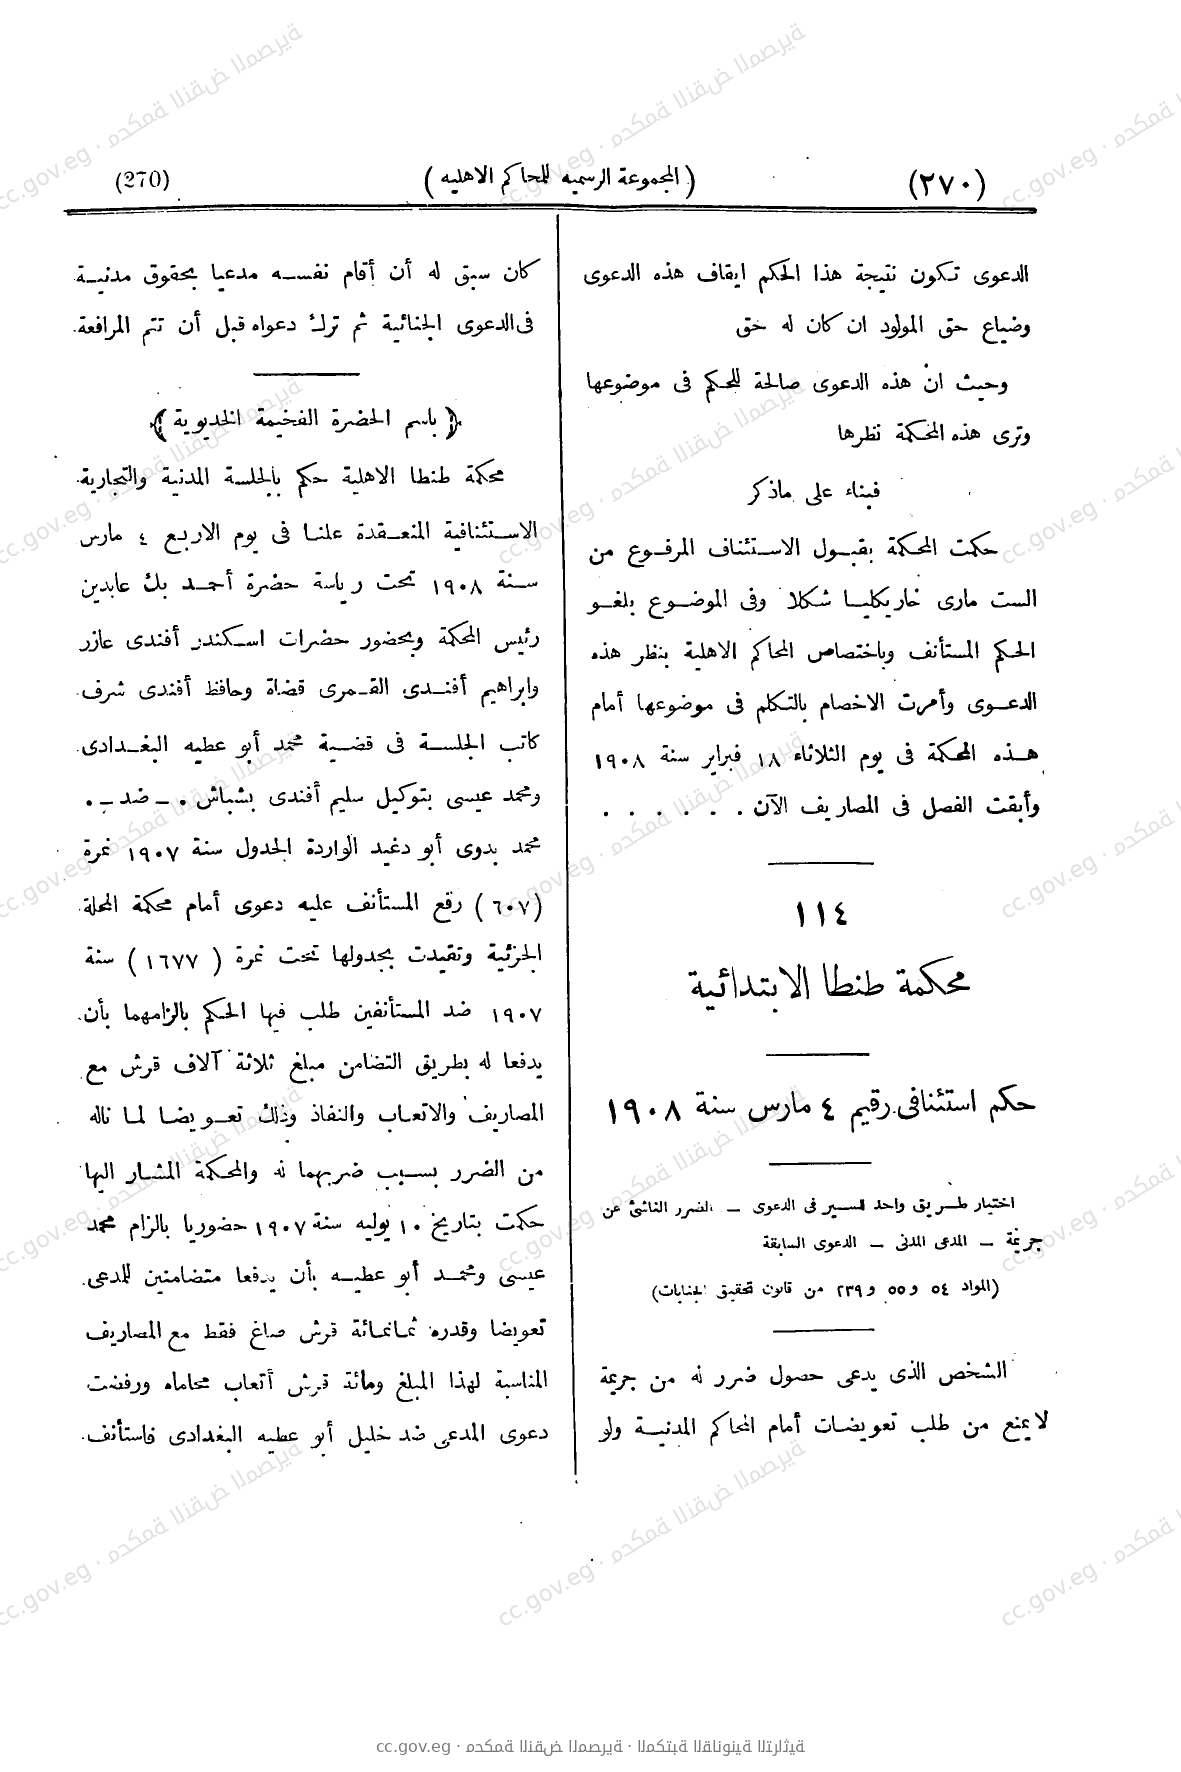 (٢٧٠) (المجموعة الرسميه للمحاكم الاهليه) (270)
الدعوى تكون نتيجة هذا الحكم ايقاف هذه الدعوى
وضياع حق المولود ان كان له حق
وحيث ان هذه الدعوى صالحة للحكم فى موضوعها
وترى هذه المحكمة نظرها
فبناء على ماذكر
حكمت المحكمة بقبول الاستئناف المرفوع من
الست مارى خاريكليا شكلا وفى الموضوع بلغو
الحكم المستأنف وباختصاص المحاكم الاهلية بنظر هذه
الدعوى وأمرت الاخصام بالتكلم فى موضوعها أمام
هذه المحكمة فى يوم الثلاثاء ١٨ فبراير سنة ١٩٠٨
وأبقت الفصل فى المصاريف الآن . . . . . .
١١٤
محكمة طنطا الابتدائية
حكم استئنافى رقيم ٤ مارس سنة ١٩٠٨
اختيار طريق واحد للسير فى الدعوى – الضرر الناشئ عن
جريمة – المدعى المدنى – الدعوى السابقة
(المواد ٥٤ و٥٥ و٢٣٩ من قانون تحقيق الجنايات)
الشخص الذى يدعى حصول ضرر له من جريمة
لايمنع من طلب تعويضات أمام المحاكم المدنية ولو
كان سبق له أن أقام نفسه مدعيا بحقوق مدنية
فى الدعوى الجنائية ثم ترك دعواه قبل أن تتم المرافعة
﴿ باسم الحضرة الفخيمة الخديوية ﴾
محكمة طنطا الاهلية حكم بالجلسة المدنية والتجارية
الاستئنافية المنعقدة علنا فى يوم الاربع ٤ مارس
سنة ١٩٠٨ تحت رياسة حضرة أحمد بك عابدين
رئيس المحكمة وبحضور حضرات اسكندر أفندى عازر
وابراهيم أفندى القمرى قضاة وحافظ أفندى شرف
كاتب الجلسة فى قضية محمد أبو عطيه البغدادى
ومحمد عيسى بتوكيل سليم أفندى بشباش . – ضد – .
محمد بدوى أبو دغيد الواردة الجدول سنة ١٩٠٧ نمرة
(٦٠٧) رفع المستأنف عليه دعوى أمام محكمة المحلة
الجزئية وتقيدت بجدولها تحت نمرة (١٦٧٧) سنة
١٩٠٧ ضد المستأنفين طلب فيها الحكم بالزامهما بأن
يدفعا له بطريق التضامن مبلغ ثلاثة آلاف قرش مع
المصاريف والاتعاب والنفاذ وذلك تعويضا لما ناله
من الضرر بسبب ضربهما له والمحكمة المشار اليها
حكمت بتاريخ ١٠ يوليه سنة ١٩٠٧ حضوريا بالزام محمد
عيسى ومحمد أبو عطيه بأن يدفعا متضامنين للمدعى
تعويضا وقدره ثمانمائة قرش صاغ فقط مع المصاريف
المناسبة لهذا المبلغ ومائة قرش أتعاب محاماه ورفضت
دعوى المدعى ضد خليل أبو عطيه البغدادى فاستأنف
cc.gov.eg · محكمة النقض المصرية · المكتبة القانونية التراثية